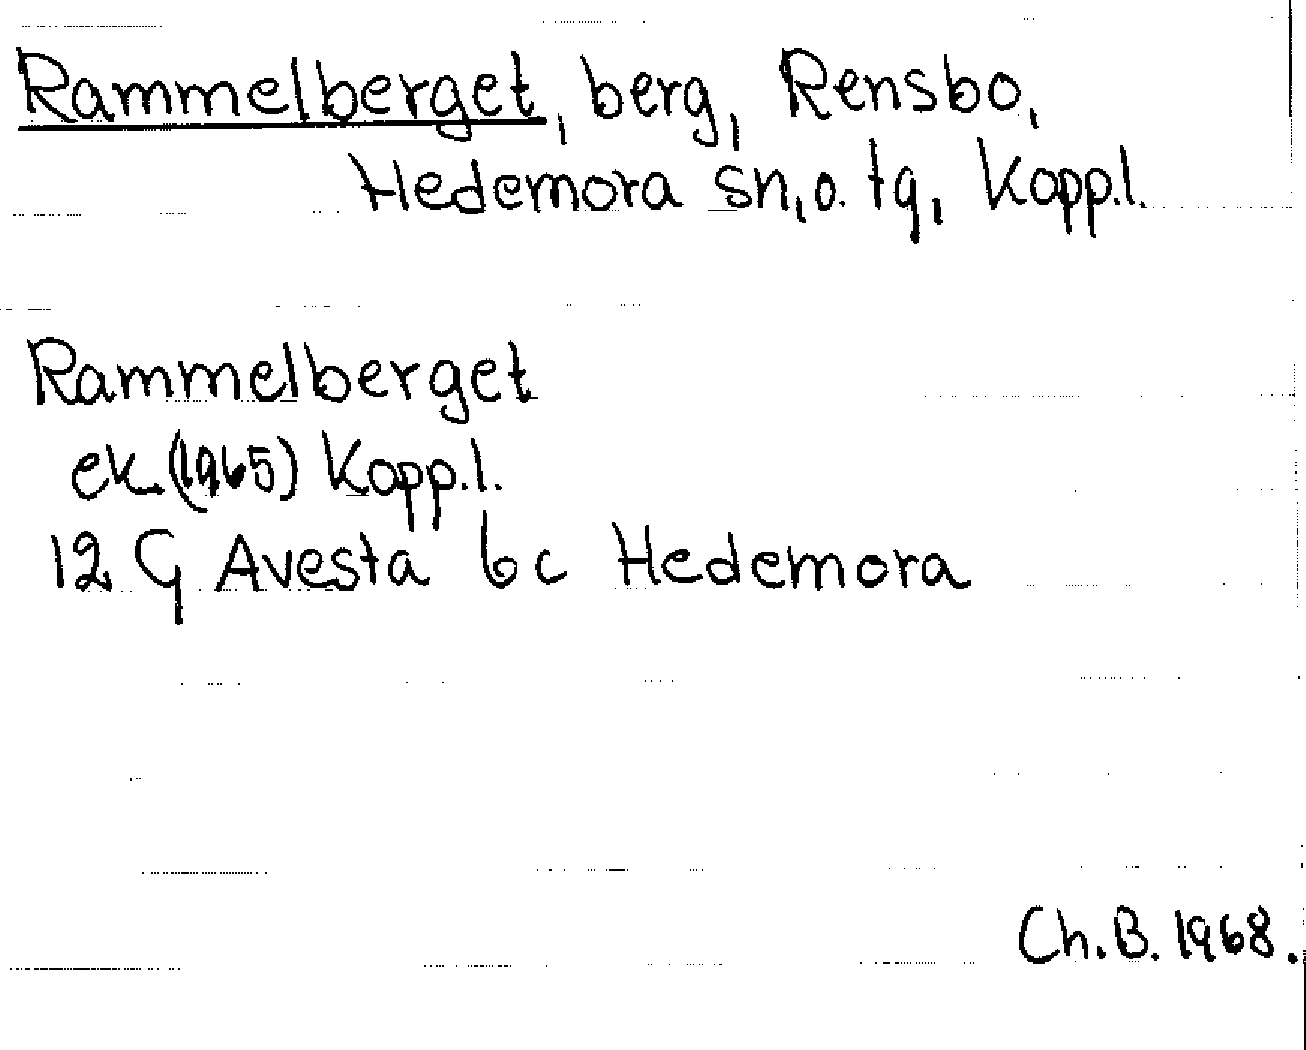 Rammelberget, berg, Rensbo,
Hedemora sn, o. tg, Kopp.l.
Rammelberget
ek. (1965) Kopp.l.
12 G Avesta 6c Hedemora
Ch.B. 1968.